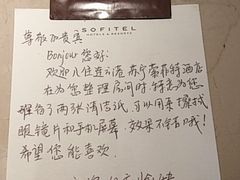 SOFITEL
HOTELS & RESORTS
尊敬的贵宾
Bonjour 您好
欢迎入住连云港 苏宁索菲特酒店
在为您整理房间时,特意为您
准备了两张清洁试,可以用来擦拭
眼镜片和手机屏幕,效果不错哦!
希望您能喜欢.